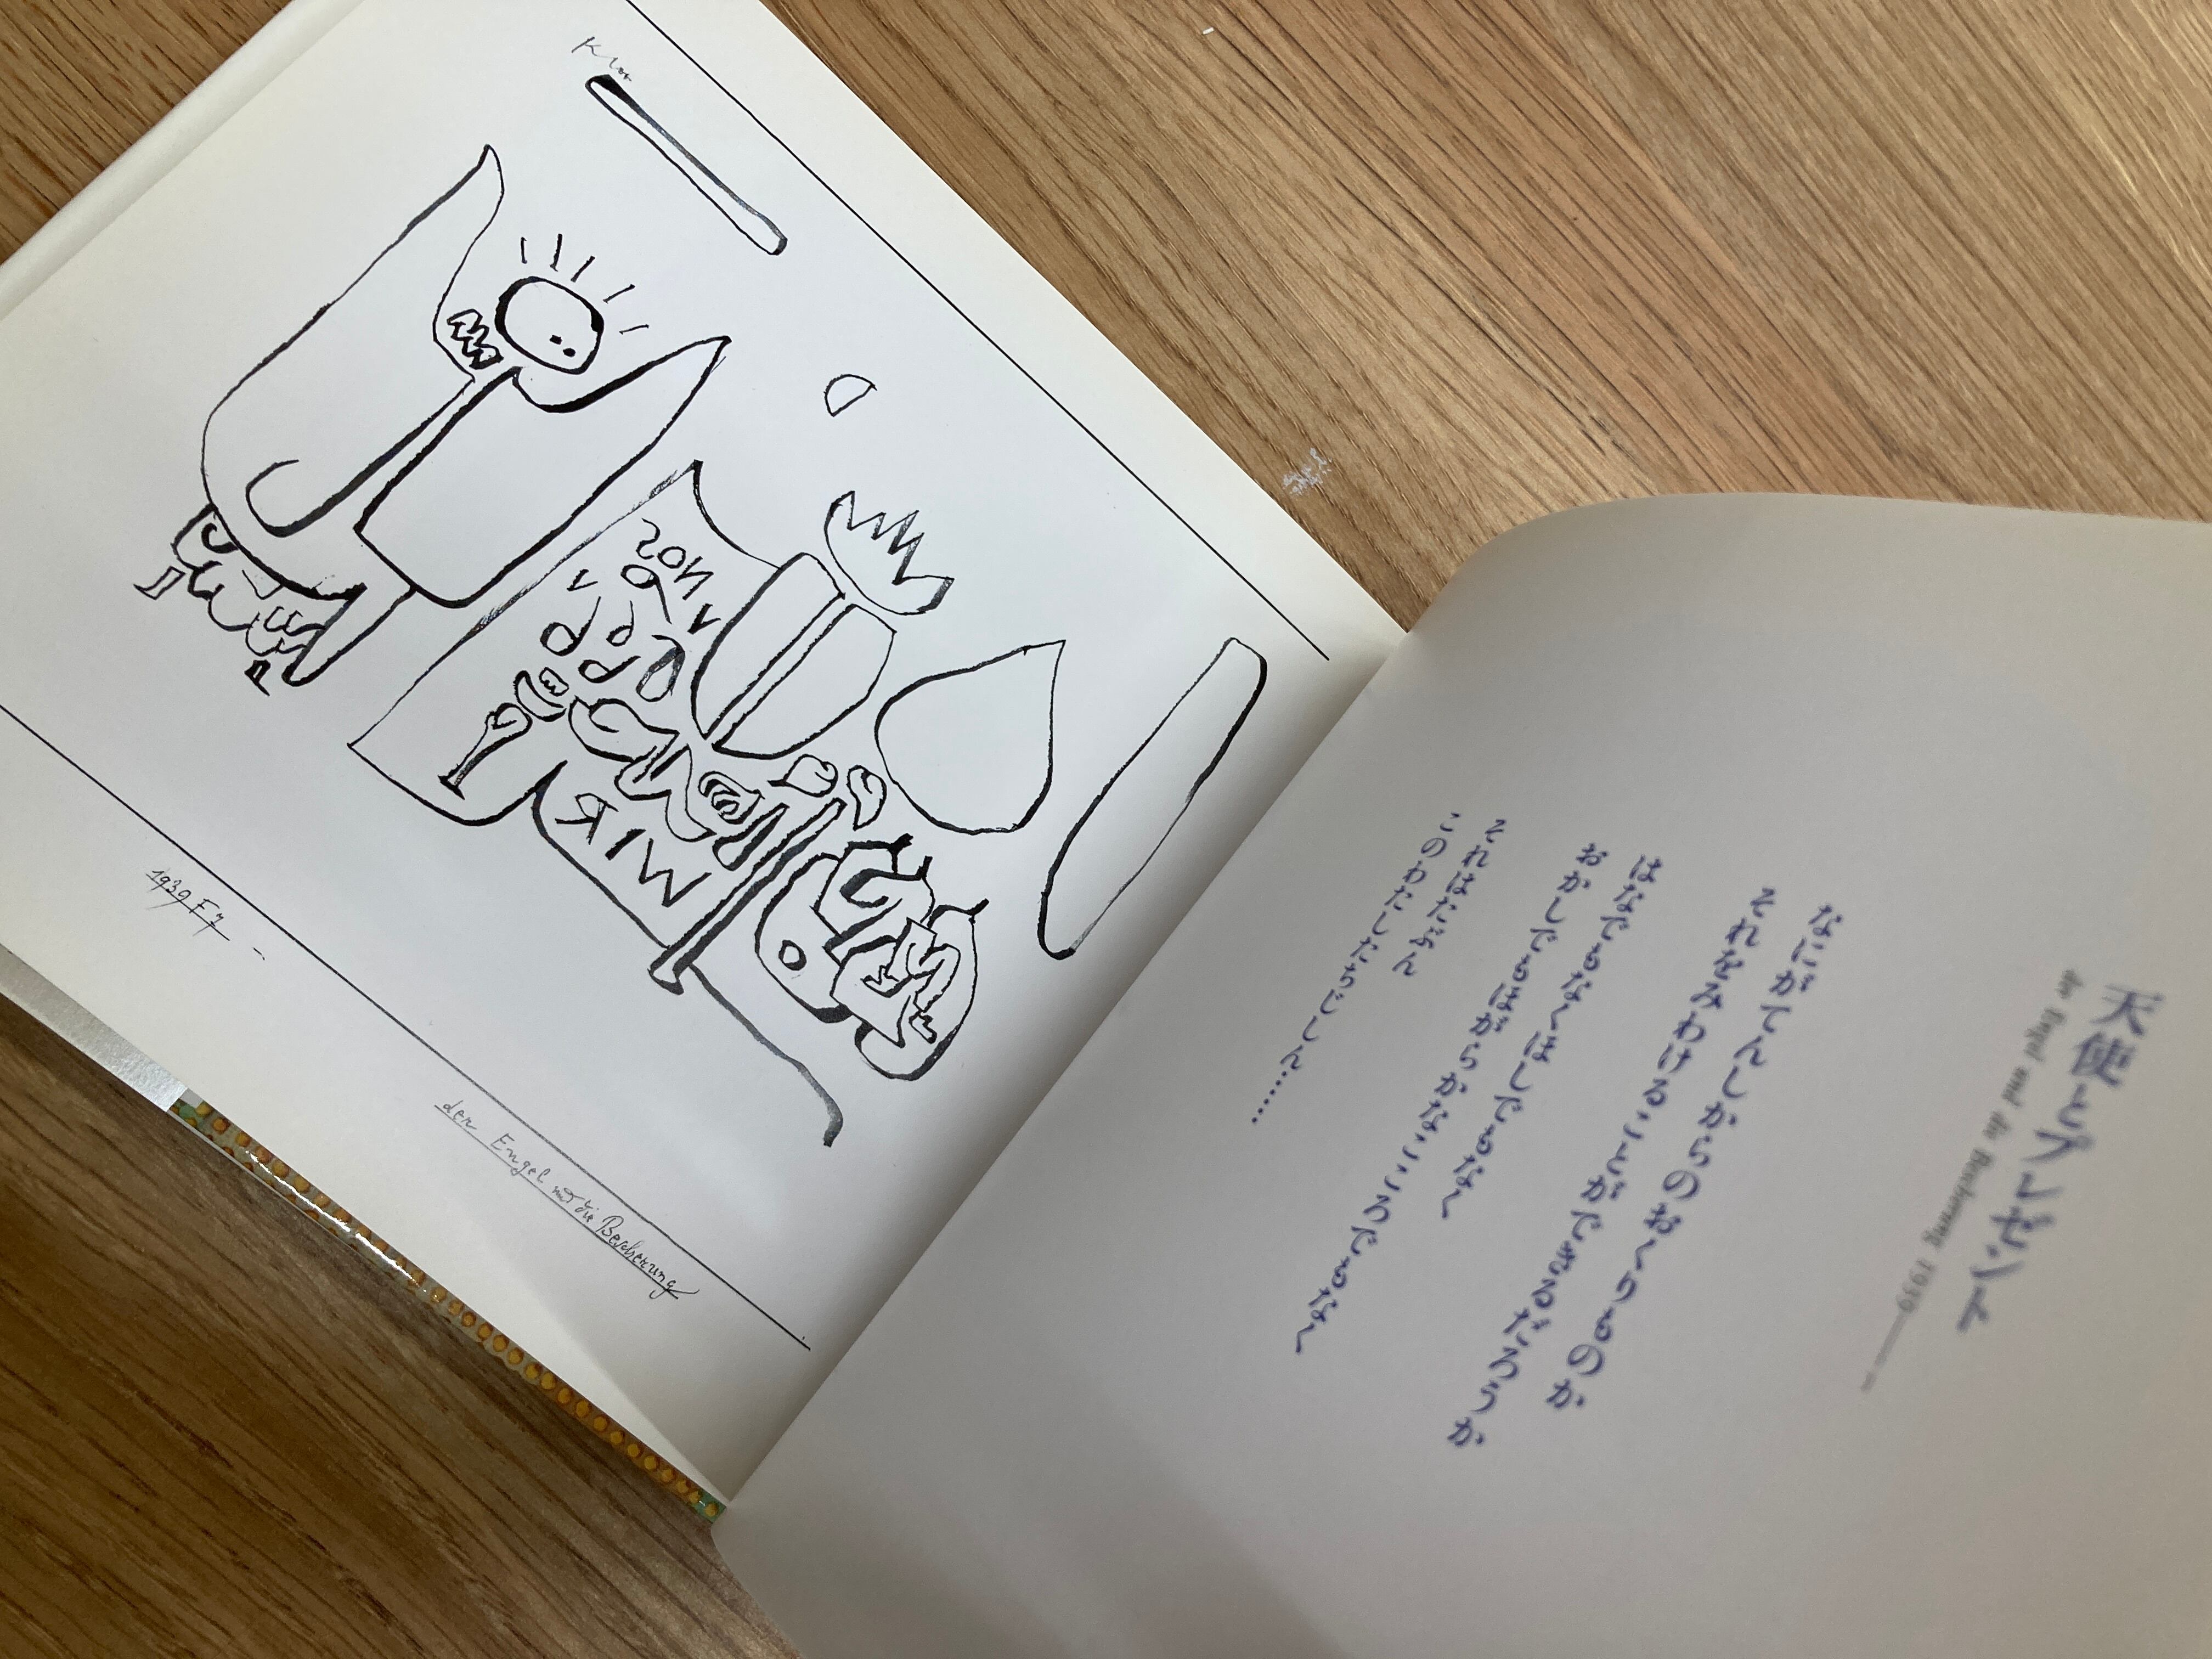 Klee
SON
WIR
1939 F 7
der Engel und die Bescherung
天使とプレゼント
der Engel und die Bescherung 1939
なにがてんしからのおくりものか
それをみわけることができるだろうか
はなでもなくほしでもなく
おかしでもほがらかなこころでもなく
それはたぶん
このわたしたちじしん……